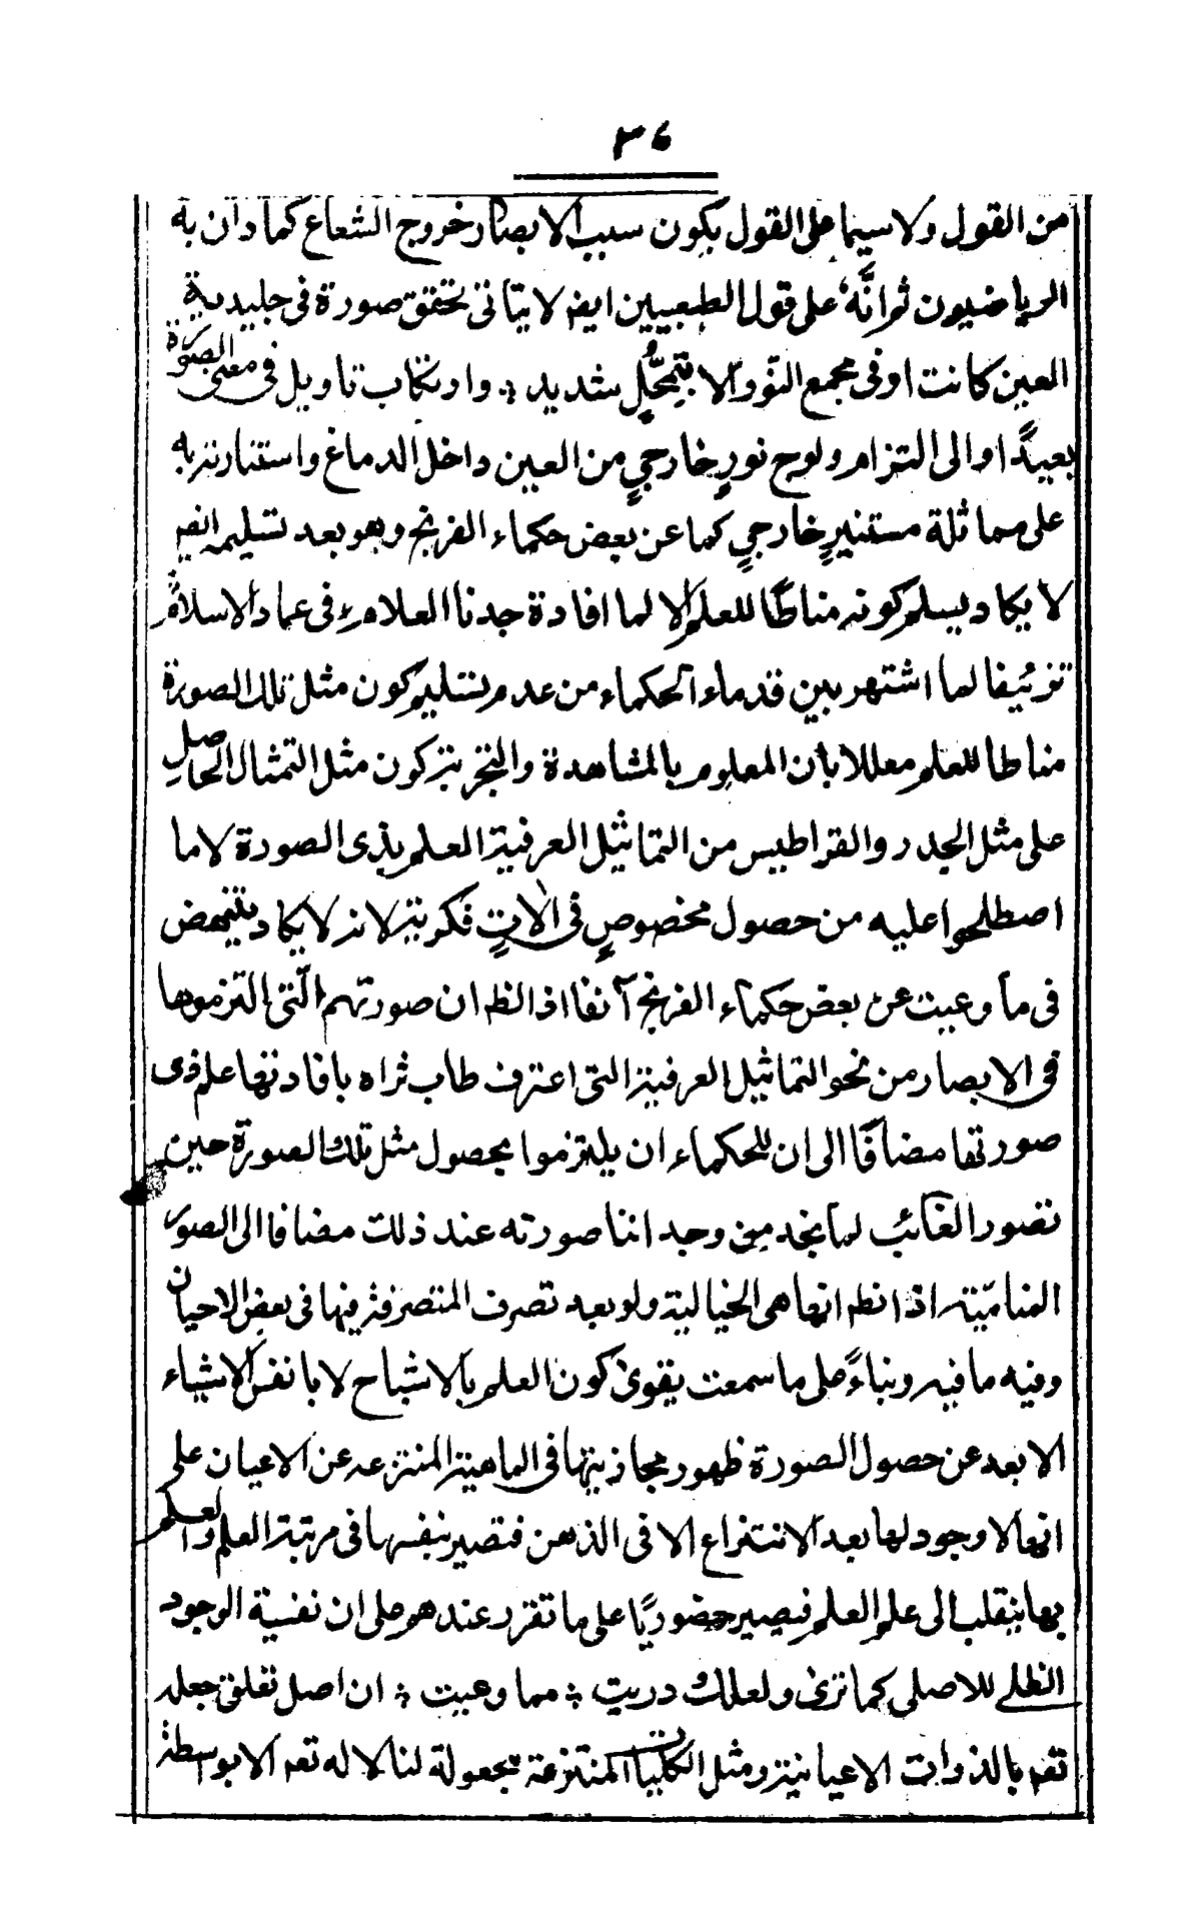 ٣٤
من القول ولا سيما على القول بكون سبب الابصار خروج الشعاع كما دان به
الرياضيون ثم انَّهٗ على قول الطبعيين ايضا لا يتاتى تحقق صورة فى جليدية
العين كانت او فى مجمع النّور الا بتمحُّلٍ شديد ؞ وارتكاب تاويل فى معنى الصورة
بعيدًا او الى التزام ولوج نورٍ خارجيٍ من العين داخل الدماغ واستنارته به
على مماثلة مستنيرٍ خارجيٍ كما عن بعض حكماء الفرنج وهو بعد تسليمه ايضا
لا يكاد يسلم كونه مناطًا للعلم الا لما افادة جدنا العلامه فى عماد الاسلام
تزئيفا لما اشتهر بين قدماء الحكماء من عدم تسليم كون مثل تلك الصورة
مناطا للعلم معللا بان المعلوم بالمشاهدة والتجربة كون مثل التمثال الحاصل
على مثل الجدر والقراطيس من التماثيل العرفية العلم بذى الصورة لا ما
اصطلحوا عليه من حصول مخصوصٍ فى الاتٍ فكرية لانه لا يكاد ينتهض
فى ما وعيت عن بعض حكماء الفرنج آنفا اذ الظ ان صورتهم الّتى التزموها
فى الابصار من نحو التماثيل العرفية التى اعترف طاب ثراه بافادتها علم ذى
صورتها مضافًا الى ان للحكماء ان يلتزموا بحصول مثل تلك الصورة حين
تصور الغائب لما نجد من وجداننا صورته عند ذلك مضافا الى الصور
المناميّة اذ الظ انها هى الخيالية ولو بعد تصرف المتصرفة فيها فى بعض الاحيان
وفيه ما فيه وبناءً على ما سمعت يقوى كون العلم بالاشباح لا بانفس الاشياء
الا بعد عن حصول الصورة ظهور مجاذبتها فى الماهية المنتزعه عن الاعيان على
انها لا وجود لها بعد الانتزاع الا فى الذهن فتصير بنفسها فى مرتبة العلم والعلم
بها ينقلب الى علم العلم فيصير حضوريًا على ما تقرر عندهم على ان نفسية الوجود
الظلے للاصلى كما ترى ولعلك دريت ؞ مما وعيت ؞ ان اصل تعلق جعله
تعم بالذوات الاعيانية ومثل الكليات المنتزعة مجعولة لنا لا له تعم الا بواسطة